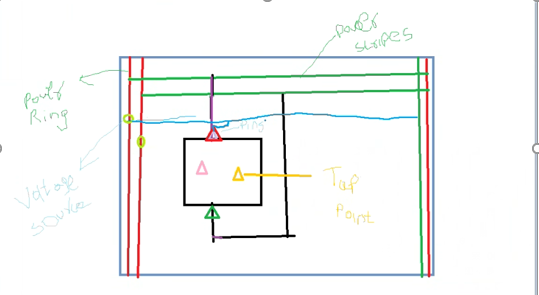 power
stripes
power
Ring
Ring
Voltage
source
Tap
point